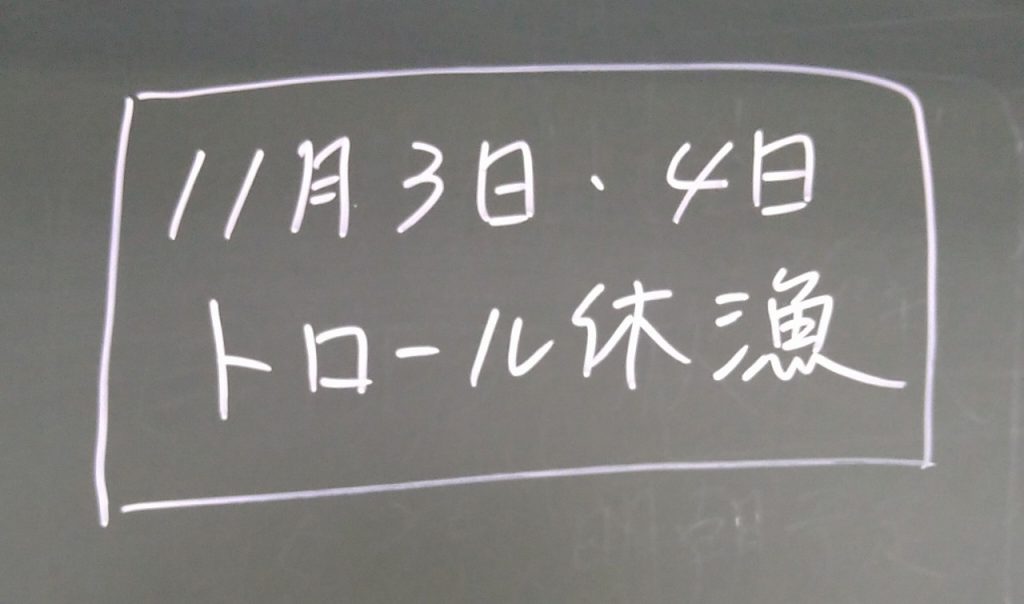 11月3日・4日
トロール休漁